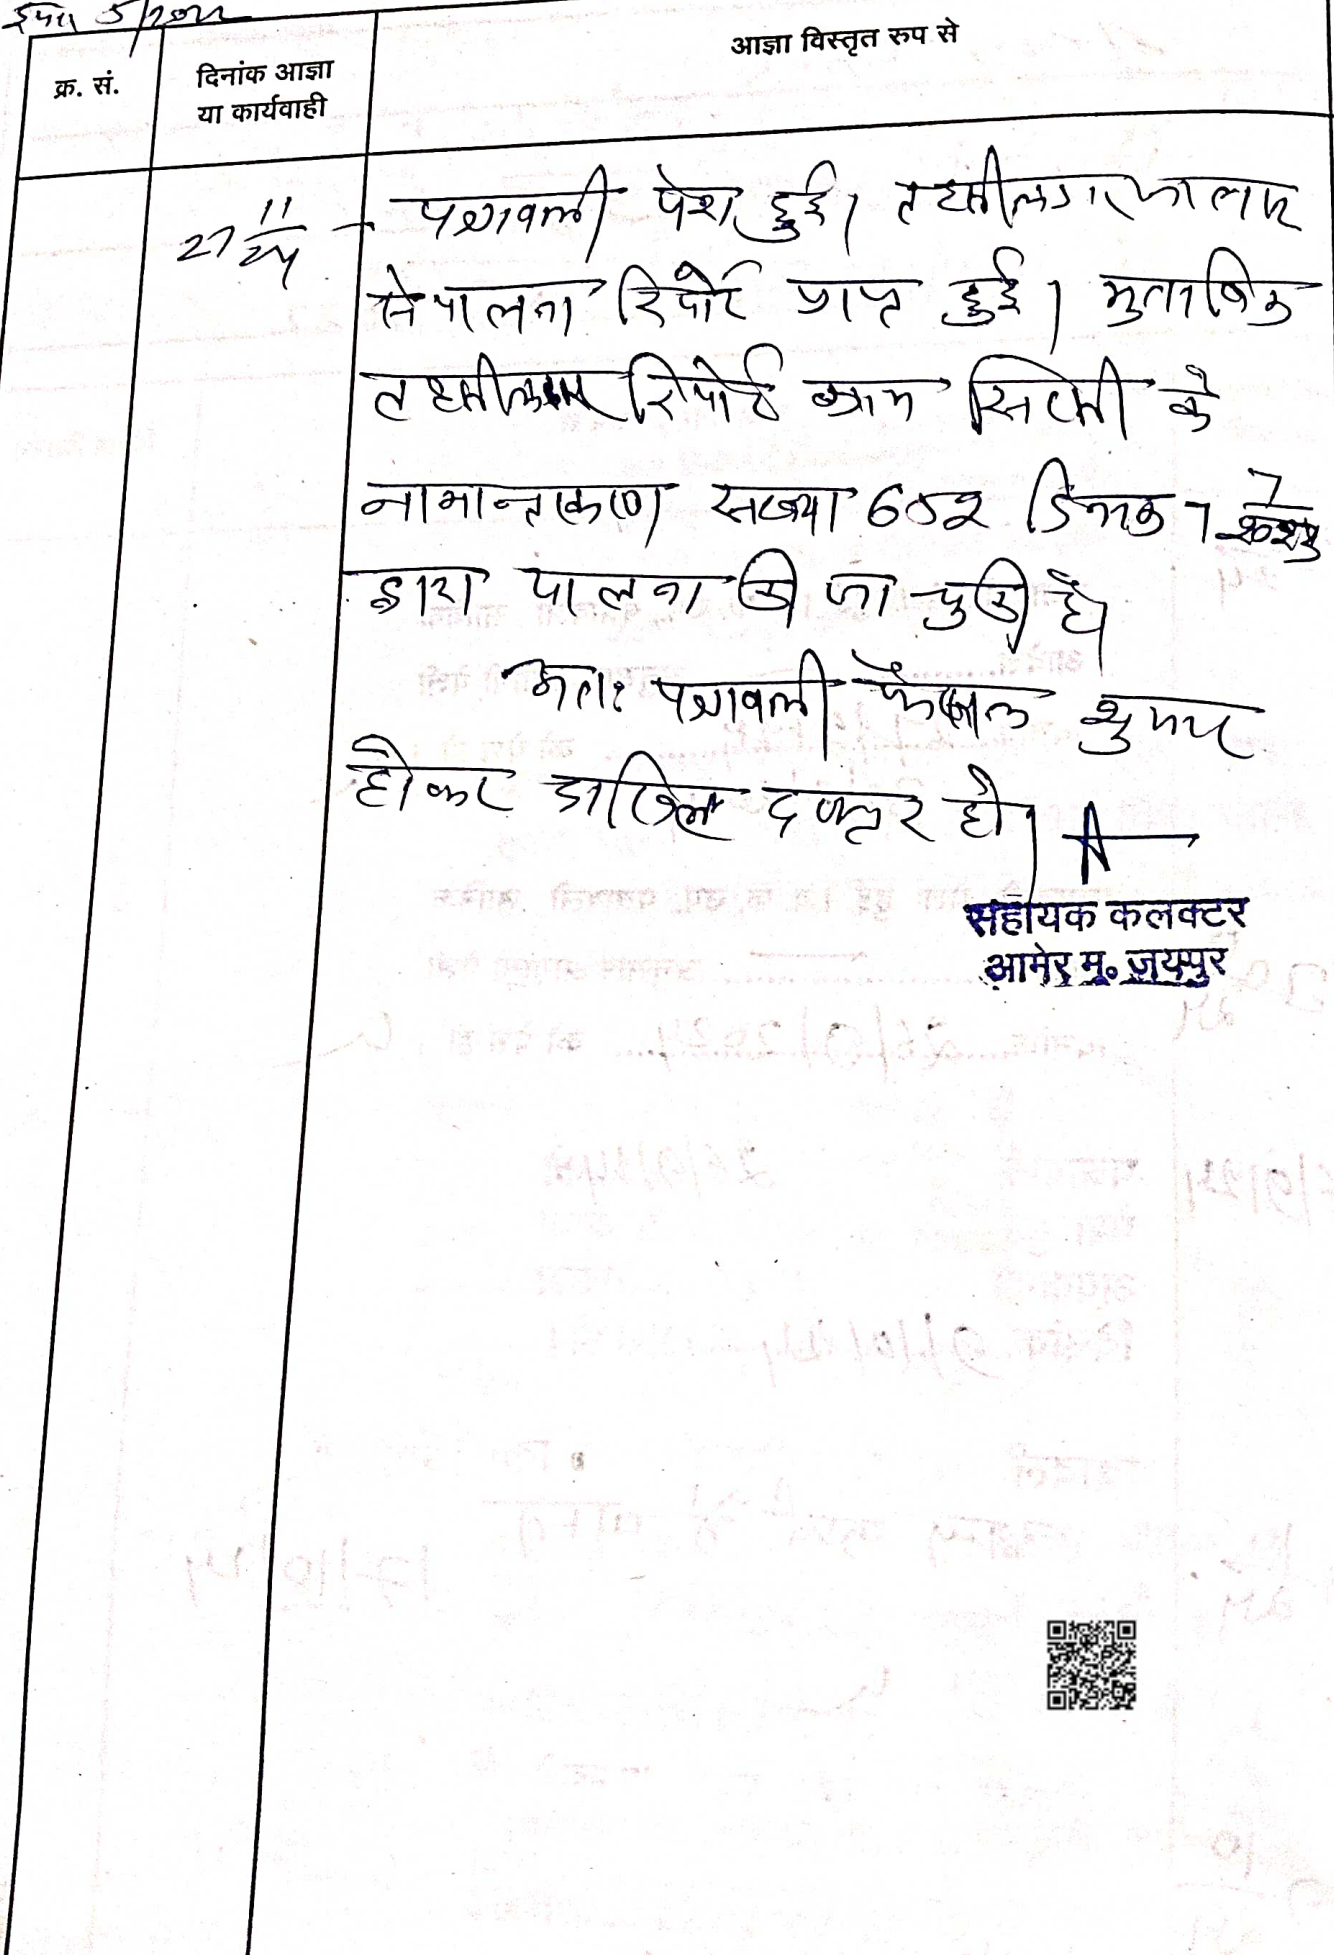 5/2022
आज्ञा विस्तृत रुप से
क्र. सं.
दिनांक आज्ञा
या कार्यवाही
27 11/24
पत्रावली पेश हुई। तहसीलदार जालसू
से पालना रिपोर्ट प्राप्त हुई। मुताबिक
तहसीलदार रिपोर्ट ग्राम सिरसी के
नामान्तकरण संख्या 602 दिनांक 7
द्वारा पालना की जा चुकी है।
अतः पत्रावली फैसल शुमार
होकर दाखिल दफ्तर हो।
सहायक कलक्टर
आमेर मु० जयपुर